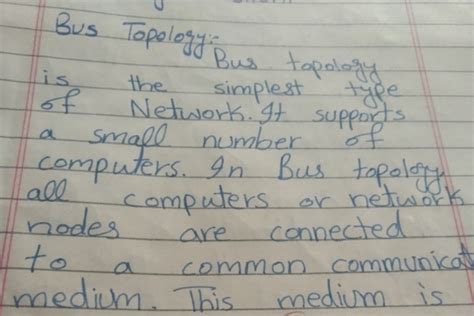 Bus Topology:-
Bus topology
is the simplest type
of Network. It supports
a small number of
computers. In Bus topology
all computers or network
nodes are connected
to a common communicat
medium. This medium is